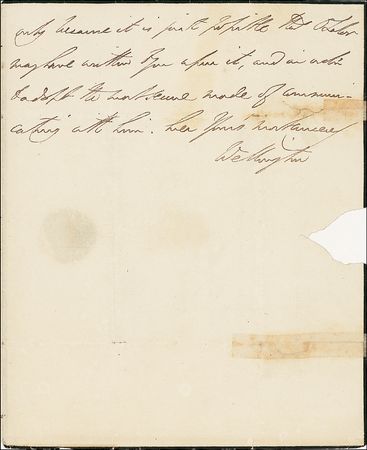 only because it is just possible that
may have written to you upon it and in order
to adopt the most secure mode of communi-
cating with him. Ever Yours most sincerely
Wellington